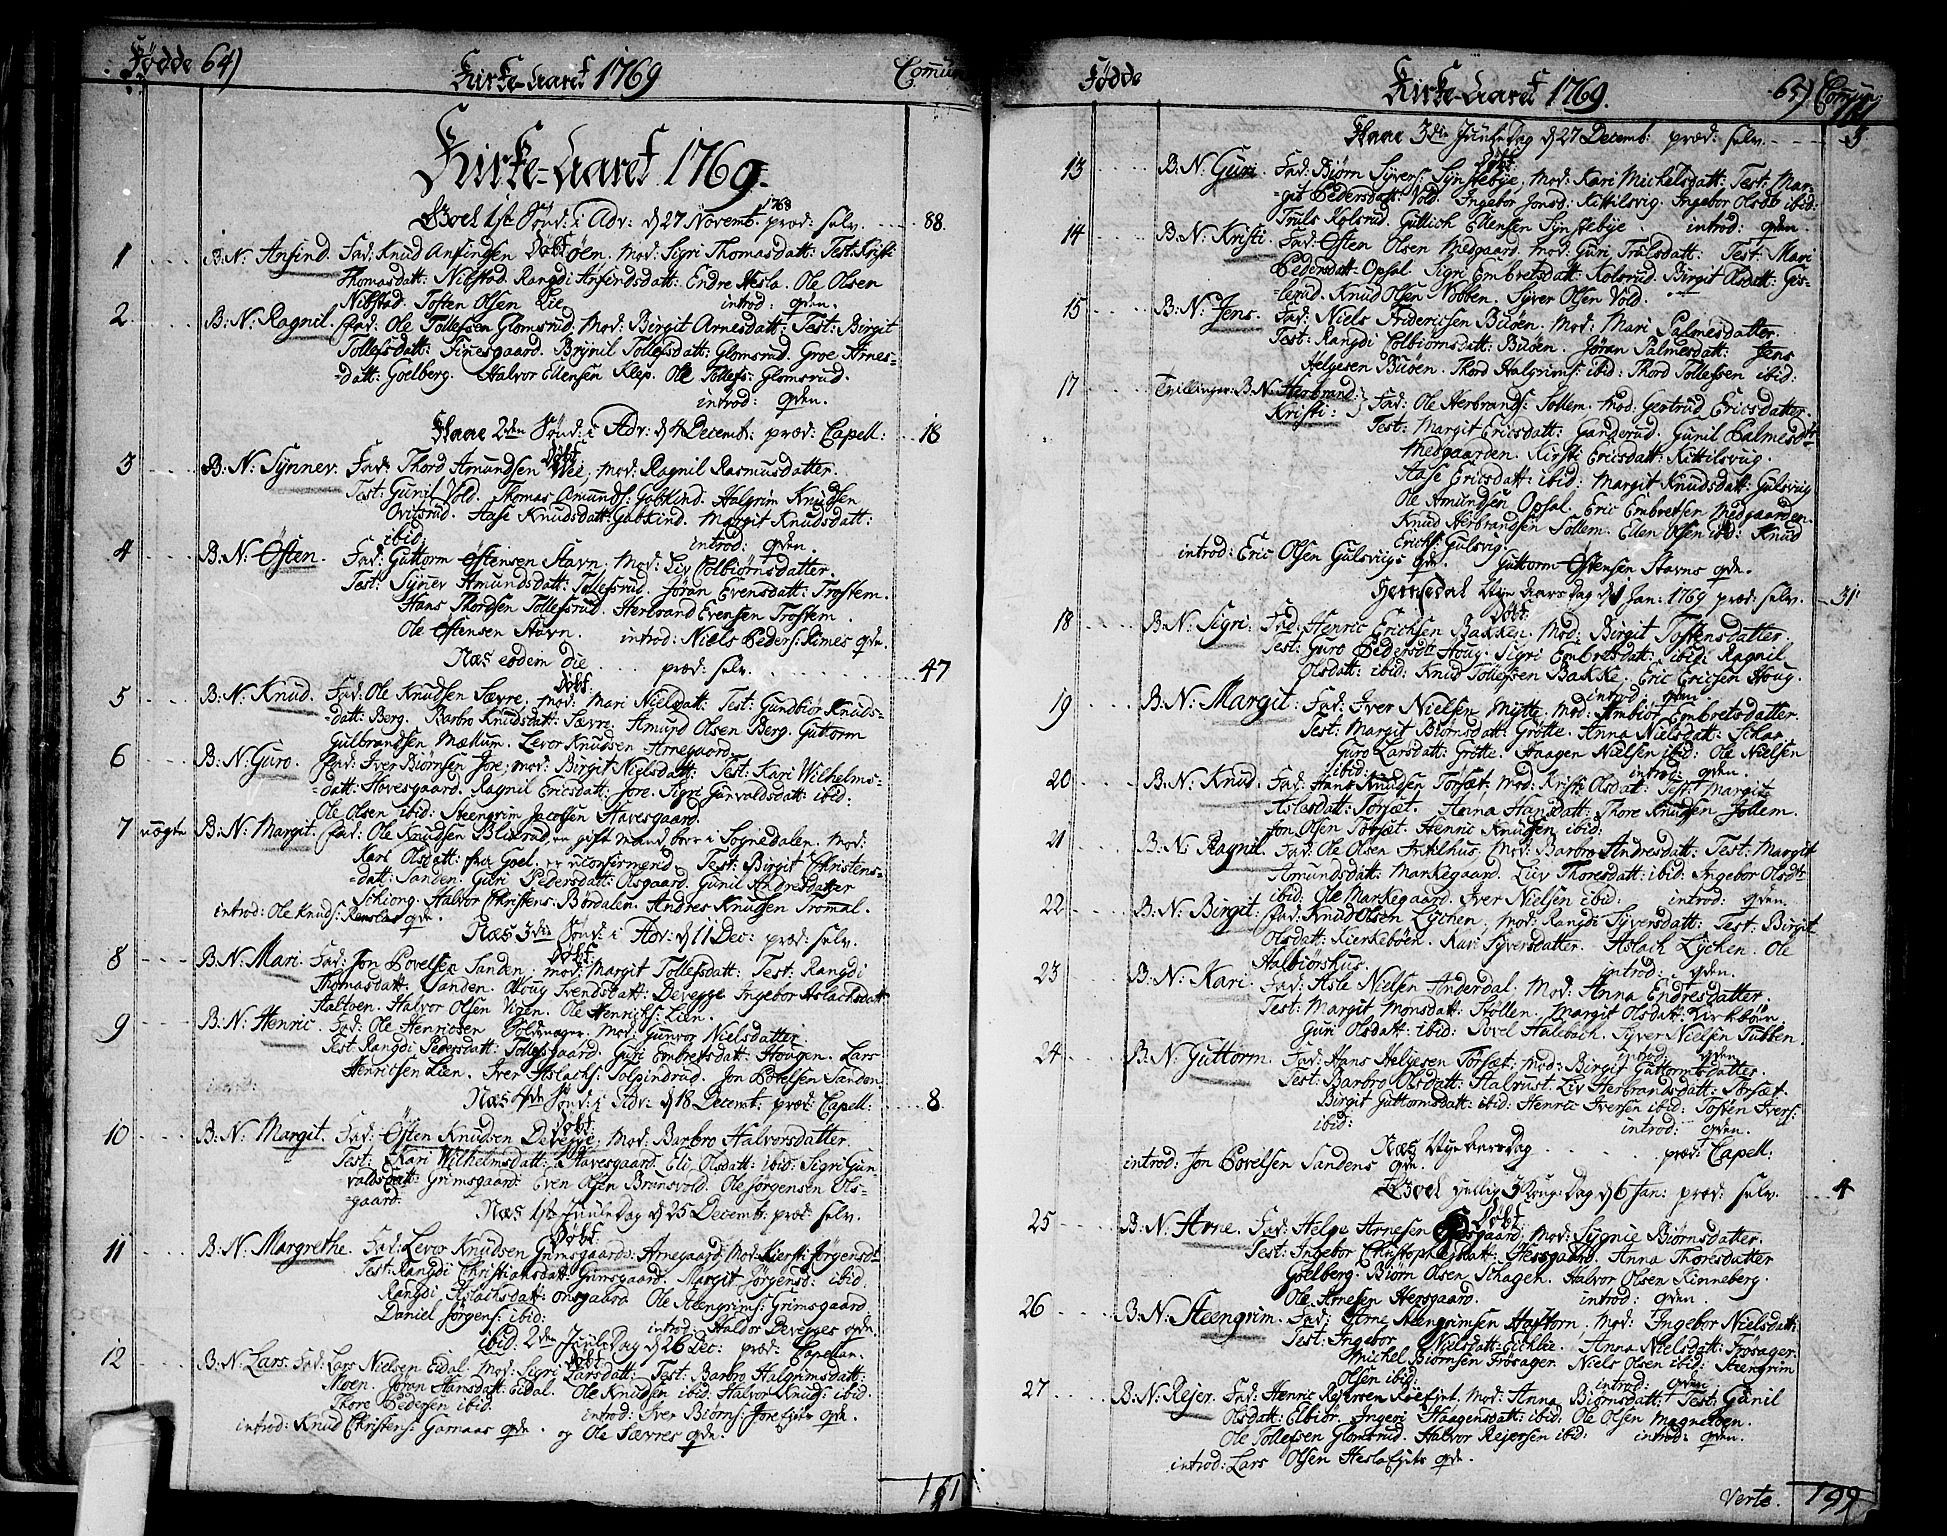 Fødde 64) Kirke-Aaret 1769 Com̄un
Kirke-Aaret 1769.
1768
Goel 1ste Sönd: i Adv: d 27 Novemb: præd: selv. 88
Döbt
1 B: N: Anfind. Fad: Knud Anfinsen Öen. Mod: Sigri Thomasdatt: Test: Kristi
Thomasdatt: Nibstad. Rangdi Anfindsdatt: Endre Hesla. Ole Olsen
Nibstad. Tosten Olsen Lie introd: qvden.
2 B: N: Ragnil. Fad: Ole Tollefsen Glomsrud. Mod: Birgit Arnesdatt: Test: Birgit
Tollefsdatt: Finesgaard. Brynil Tollefsdatt: Glomsrud. Groe Arnes-
-datt: Goelberg. Halvor Ellensen Klep. Ole Tollefs: Glomsrud.
introd: qvden.
2den Sönd: i Adv: d 4 Decemb: præd: Capell: 18
Döbt
3 B: N: Synnev. Fad: Thord Amundsen Wee, mod: Ragnil Rasmusdatter.
Test: Gunil Vold. Thomas Amunds: Golskind. Halgrim Knudsen
Aase Knudsdatt: Golskind. Margit Knudsdatt:
ibid: introd: qvden.
4 B: N: Östen. Fad: Guttorm Östensen Stavn, Mod: Liv Colbiörnsdatter.
Test: Synev Amundsdatt: Tollefsrud. Jöran Evensdatt: Trostem.
Hans Thordsen Tollefsrud. Herbrand Evensen Trostem.
Ole Östensen Stavn. introd: Niels Peders: Rimes qvde.
Næs eodem die præd: selv. 47
Döbt
5 B: N: Knud. Fad: Ole Knudsen Sævre, mod: Mari Nielsdatt: Test: Gundbiör Knuds-
-datt: Berg. Barbro Knudsdatt: Sævre. Amund Olsen Berg. Guttorm
Gulbrandsen Mæhlum. Levor Knudsen Arnegaard.
6 B: N: Guro. Fad: Iver Biörnsen Jore, mod: Birgit Nielsdatt: Test: Kari Wilhelms-
-datt: Havesgaard. Ragnil Ericsdatt: Jore. Sigri Gunvaldsdatt: ibid:
Ole Olsen ibid: Steengrim Jacobsen Havesgaard.
7 uægte B: N: Margit. Fad: Ole Knudsen Blixrud, en gift mand boer i Sognedalen. Mod:
Kari Olsdatt: fra Goel, er uconfirmered. Test: Birgit Christens-
-datt: Sanden. Guri Pedersdatt: Olsgaard. Gunil Andresdatter
Schiong. Halvor Christens: Bordalen. Andres Knudsen Tromal.
introd: Ole Knuds: qvde.
Næs 3die Sönd: i Adv: d 11 Dec: præd: selv.
Döbt
8 B: N: Mari. Fad: Jon Povelsen Sanden, mod: Margit Tollefsdatt: Test: Rangdi
Thomasdatt: Sanden. Houg Svendsdatt: Devegge. Ingebor Aslachsdatt
Halvor Olsen Vigen. Ole Henrichs: Lien.
9 B: N: Henric. Fad: Ole Henricsen Mod: Gunvor Nielsdatter
Test: Rangdi Pedersdatt: Tollefsgaard. Guri Embretsdatt: Hougen. Lars
Henricsen Lien. Iver Aslachs: Jon Povelsen Sanden.
Næs 4de Sönd: i Adv: d 18 Decemb: præd: Capell: 8
Döbt
10 B: N: Margit. Fad: Östen Knudsen Devegge, Mod: Barbro Halvorsdatter.
Test: Kari Wilhelmsdatt: Havesgaard. Eli Olsdatt: ibid: Sigri Gun-
valdsdatt: Grimsgaard. Even Olsen Bransvold. Ole Jörgensen Ols-
-gaard.
Næs 1ste Juuledag d 25 Decemb: præd: selv.
Döbt
11 B: N: Margrethe. Fad: Levor Knudsen Grimsgaards: Arnegaard. Mod: Kiersti Jörgensdt
Test: Rangdi Christiansdatt: Grimsgaard. Margit Jörgensd: ibid.
Rangdi Aslachsdatt: Onsgaard. Ole Steengrims: Grimsgaard.
Daniel Jörgens: ibid: introd: Haldor Devegges qvde.
ibid: 2den Juuledag d 26 Dec: præd: Capellan.
Döbt
12 B: N: Lars. Fad: Lars Nielsen Eidal. Mod: Sigri Larsdatt: Test: Barbro Halgrimsdatt:
Moen. Jöran Hansdatt: Eidal. Ole Knudsen ibid: Halvor Knuds: ibid.
Thore Pedersen ibid. introd: Iver Biörns: qvde.
introd: Knud Christens: Garnaas qvde. og Ole Sævres qvde.
161
Fødde Kirke-Aaret 1769. 65) Com̄un
161
3die Juuledag d 27 Decemb: præd: selv. 3
Döbt
13 B: N: Guri. Fad: Biörn Syvers: Synstebye, Mod: Kari Michelsdatt: Test: Mar-
-git Pedersdatt: Vold. Ingebor Jonsd: Kittilsvig. Ingebor Olsdt: ibid:
Truls Kolsrud. Guttich Ellensen Synstebye. introd: qvden.
14 B: N: Kristi. Fad: Östen Olsen Medgaard. mod: Guri Trulsdatt: Test: Mari
Pedersdatt: Opsal. Sigri Embretsdatt: Kolsrud. Birgit Olsdatt: Gis-
-lerud. Knud Olsen Nobben. Syver Olsen Vold.
15 B: N: Jens. Fad: Niels Fridericsen Buöen. Mod: Mari Palmesdatter
Test: Rangdi Colbiörnsdatt: Buöen. Jöran Palmesdatt: Jens
Helgesen Buöen. Thord Halgrims: ibid: Thord Tollefsen ibid:
17 Tvillinger: B: N: Herbrand: Kristi: } Fad: Ole Herbrands: Sollem. Mod: Gertrud Ericsdatter.
Test: Margit Ericsdatt: Garderud. Gunil Palmesdtt
Medgaarden. Kirsti Ericsdatt: Kittilsvig.
Aase Ericsdatt: ibid: Margit Knudsdatt: Gulsvig
Ole Amundsen Opsal. Eric Embretsen Medgaarden.
Knud Herbrandsen Sollem. Ellen Olsen ibid: Knud
Erichs: Gulsvig.
introd: Eric Olsen Gulsvigs qvde. Guttorm Östensen Stavns qvde.
Hemsedal Nye Aars Dag d 1 Jan: 1769 præd: selv. 31
Döbt
18 B: N: Sigri: Fad: Henric Erichsen Bakken. Mod: Birgit Tostensdatter.
Test: Guro Pedersdtt Houg. Sigri Embretsdatt: ibid: Ragnil
Olsdatt: ibid: Knud Tollefsen Bakke. Eric Ericsen Houg.
introd: qvden.
19 B: N: Margit: Fad: Iver Nielsen Mytte. mod: Ambiör Embretsdatter.
Test: Margit Biörnsdatt: Grötte. Anna Nielsdatt:
Guro Larsdatt: Grötte. Haagen Nielsen ibid: Ole Nielsen
ibid: introd: qvden.
20 B: N: Knud. Fad: Hans Knudsen Torset. Mod: Kristi Olsdat: Test: Margit
Aslesdatt: Torset. Anna Thore Knudsen
Jon Olsen Torset. Henric Knudsen ibid:
21 B: N: Ragnil. Fad: Ole Olsen Mod: Barbro Andresdatt: Test: Margit
Amundsdatt: Markegaard. Liv Thoresdatt: ibid: Ingebor Olsdtt
ibid: Ole Markegaard. Iver Nielsen ibid: introd: qvden.
22 B: N: Birgit: Fad: Knud Olsen Lÿchen, mod: Rangdi Syversdatt: Test: Birgit
Olsdatt: Kierkeböen. Kari Syversdatter. Aslach Lÿcken. Ole
Halbiörshus. introd: qvden.
23 B: N: Kari. Fad: Asle Nielsen Anderdal. Mod: Anna Endresdatter.
Test: Margit Monsdatt: Stöllen. Margit Olsdat: Kirkböen
Guri Olsdatt: ibid: Povel Hulbach. Syver Nielsen Tubben.
introd: qvden.
24 B: N: Guttorm. Fad: Hans Helgesen Torset. Mod: Birgit Guttormsdatter.
Test: Barbro Olsdatt: Halrust. Liv Herbrandsdatt: Torset.
Birgit Guttormsdatt: ibid: Henric Iversen ibid: Tosten Ivers:
ibid: introd: qvden.
Næs Nye Aars Dag præd: Capell:
introd: Jon Povelsen Sandens qvde.
Goel Hellig 3 Konge Dag d 6 Jan: præd: selv. 4
Döbt
25 B: N: Arne. Fad: Helge Arnesen Mod: Sygnie Biörnsdatter.
Test: Ingebor Christophersdatt: Hersgaard. Anna Thoresdatter
Goelberg. Biörn Olsen Schagen. Halvor Olsen Kinneberg.
Ole Arnesen Hersgaard. introd: qvden.
26 B: N: Steengrim. Fad: Arne Steengrimsen Haftorn. Mod: Ingebor Nielsdatt:
Test: Ingebor Nielsdatt: Eichlie. Anna Nielsdatt: Frösager.
Michel Biörnsen Frösager. Niels Olsen ibid: Steengrim
Olsen ibid: introd: qvden
27 B: N: Rejer. Fad: Henric Rejersen Mod: Anna Biörnsdatt: Test: Gunil
Olsdatt: Elbiör. Ingeri Haagensdatt: ibid: Ole Olsen
Ole Tollefsen Glomsrud. Halvor Rejersen ibid: introd: qvden.
introd: Lars Olsen qvde.
Verte. 199